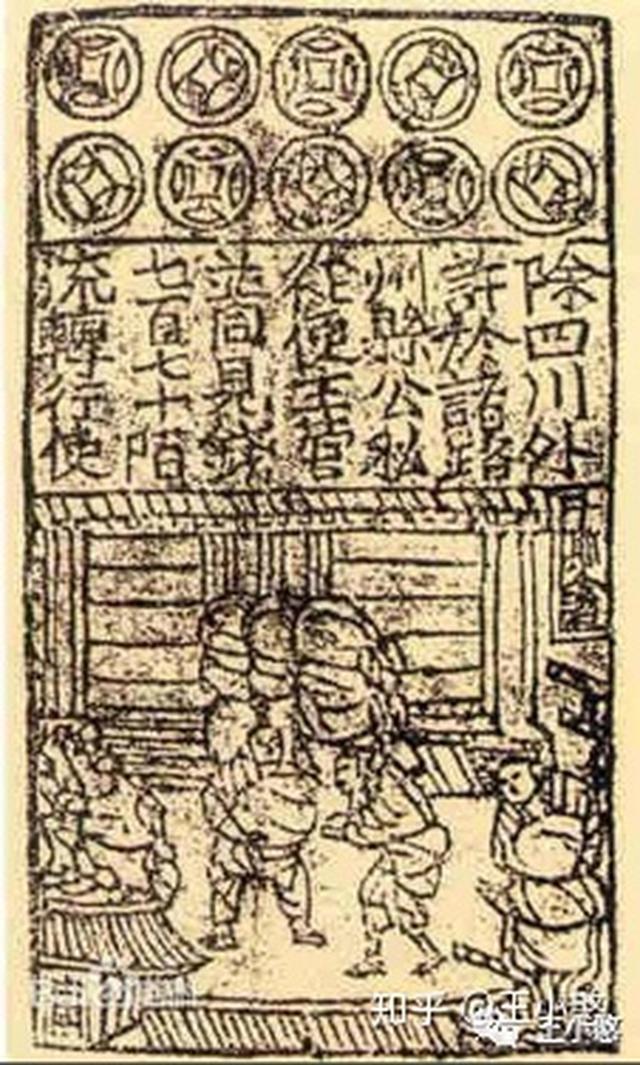 除四川外
許於諸路
州縣公私
從便主管
並同見錢
七百七十陌
流轉行使
知乎 @王小憨
王小憨